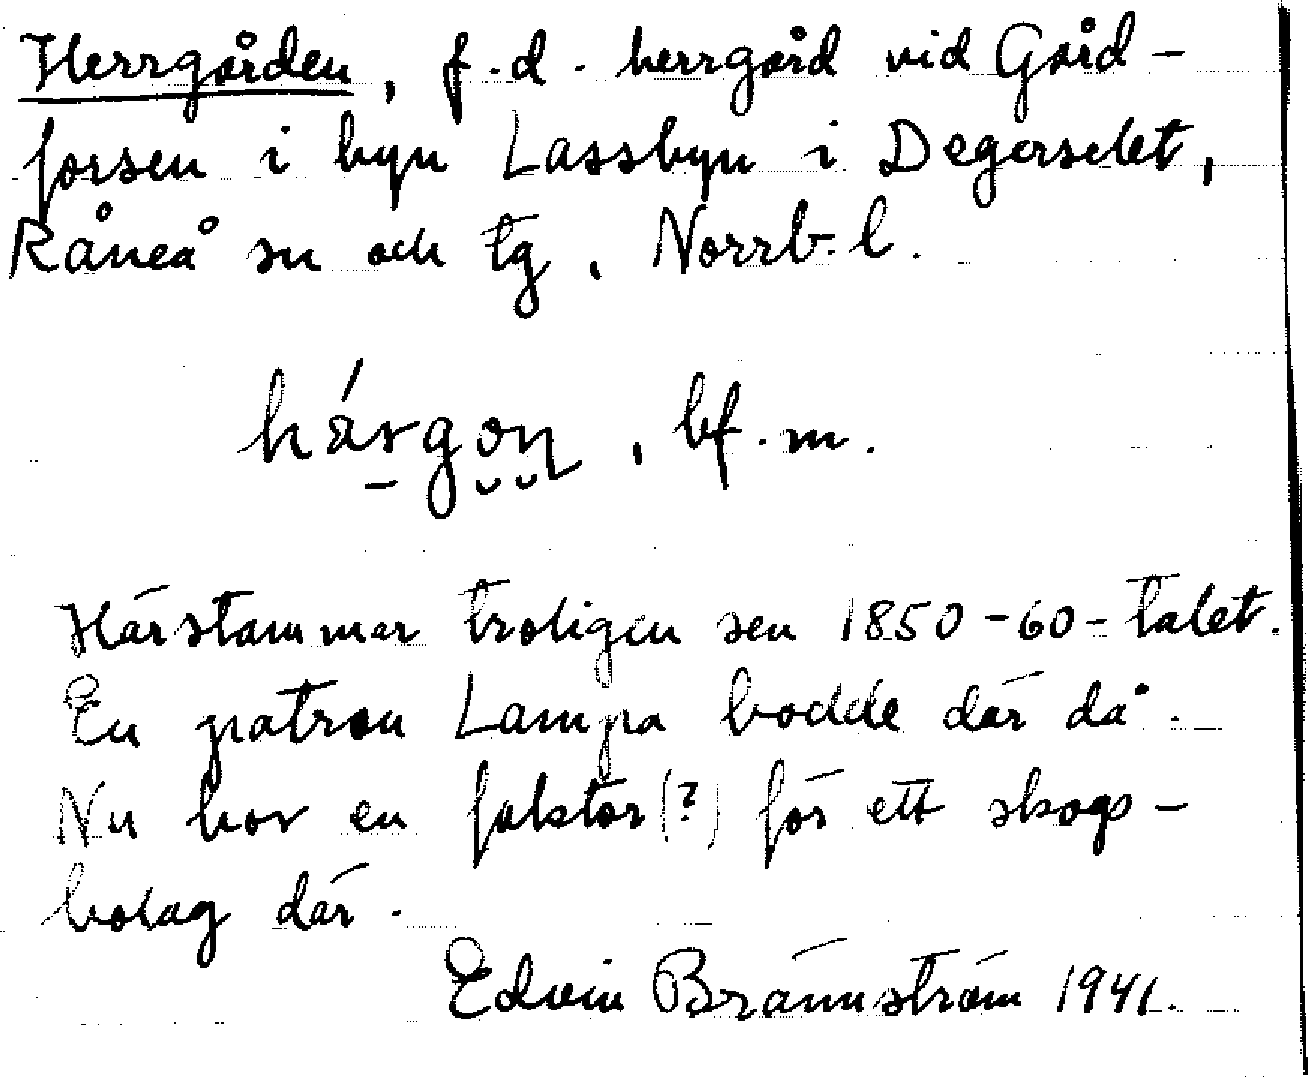 Herrgården, f.d. herrgård vid Gård-
forsen i byn Lassbyn i Degerselet,
Råneå sn och tg, Norrb. l.
hárgon, bf. m.
Härstammar troligen sen 1850-60-talet.
En patron Lampa bodde där då.
Nu bor en faktor(?) för ett skogs-
bolag där.
Edvin Brännström 1941.